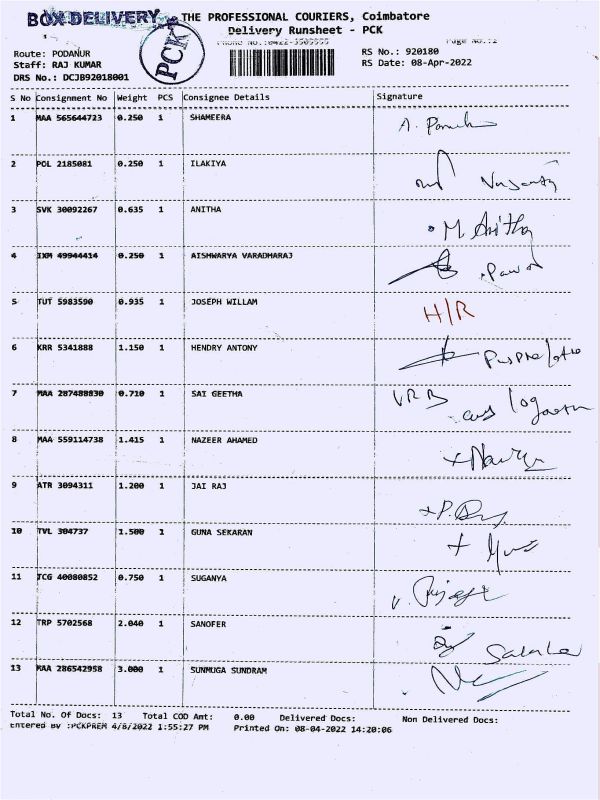 BOX DELIVERY THE PROFESSIONAL COURIERS, Coimbatore
Delivery Runsheet - PCK
PCK
Route: PODANUR
Staff: RAJ KUMAR
DRS No.: DCJB92018001
RS No.: 920180
RS Date: 08-Apr-2022
S No Consignment No Weight PCS Consignee Details Signature
1 MAA 565644723 0.250 1 SHAMEERA
2 POL 2185081 0.250 1 ILAKIYA
3 SVK 30092267 0.635 1 ANITHA M. Anitha
4 IXM 49944414 0.250 1 AISHWARYA VARADHARAJ
5 TUT 5983590 0.935 1 JOSEPH WILLAM H/R
6 KRR 5341888 1.150 1 HENDRY ANTONY
7 MAA 287488830 0.710 1 SAI GEETHA
8 MAA 559114738 1.415 1 NAZEER AHAMED
9 ATR 3094311 1.200 1 JAI RAJ
10 TVL 304737 1.500 1 GUNA SEKARAN
11 TCG 40080852 0.750 1 SUGANYA
12 TRP 5702568 2.040 1 SANOFER
13 MAA 286542958 3.000 1 SUNMUGA SUNDRAM
Total No. Of Docs: 13 Total COD Amt: 0.00 Delivered Docs: Non Delivered Docs:
Entered By :PCKPREM 4/8/2022 1:55:27 PM Printed On: 08-04-2022 14:20:06